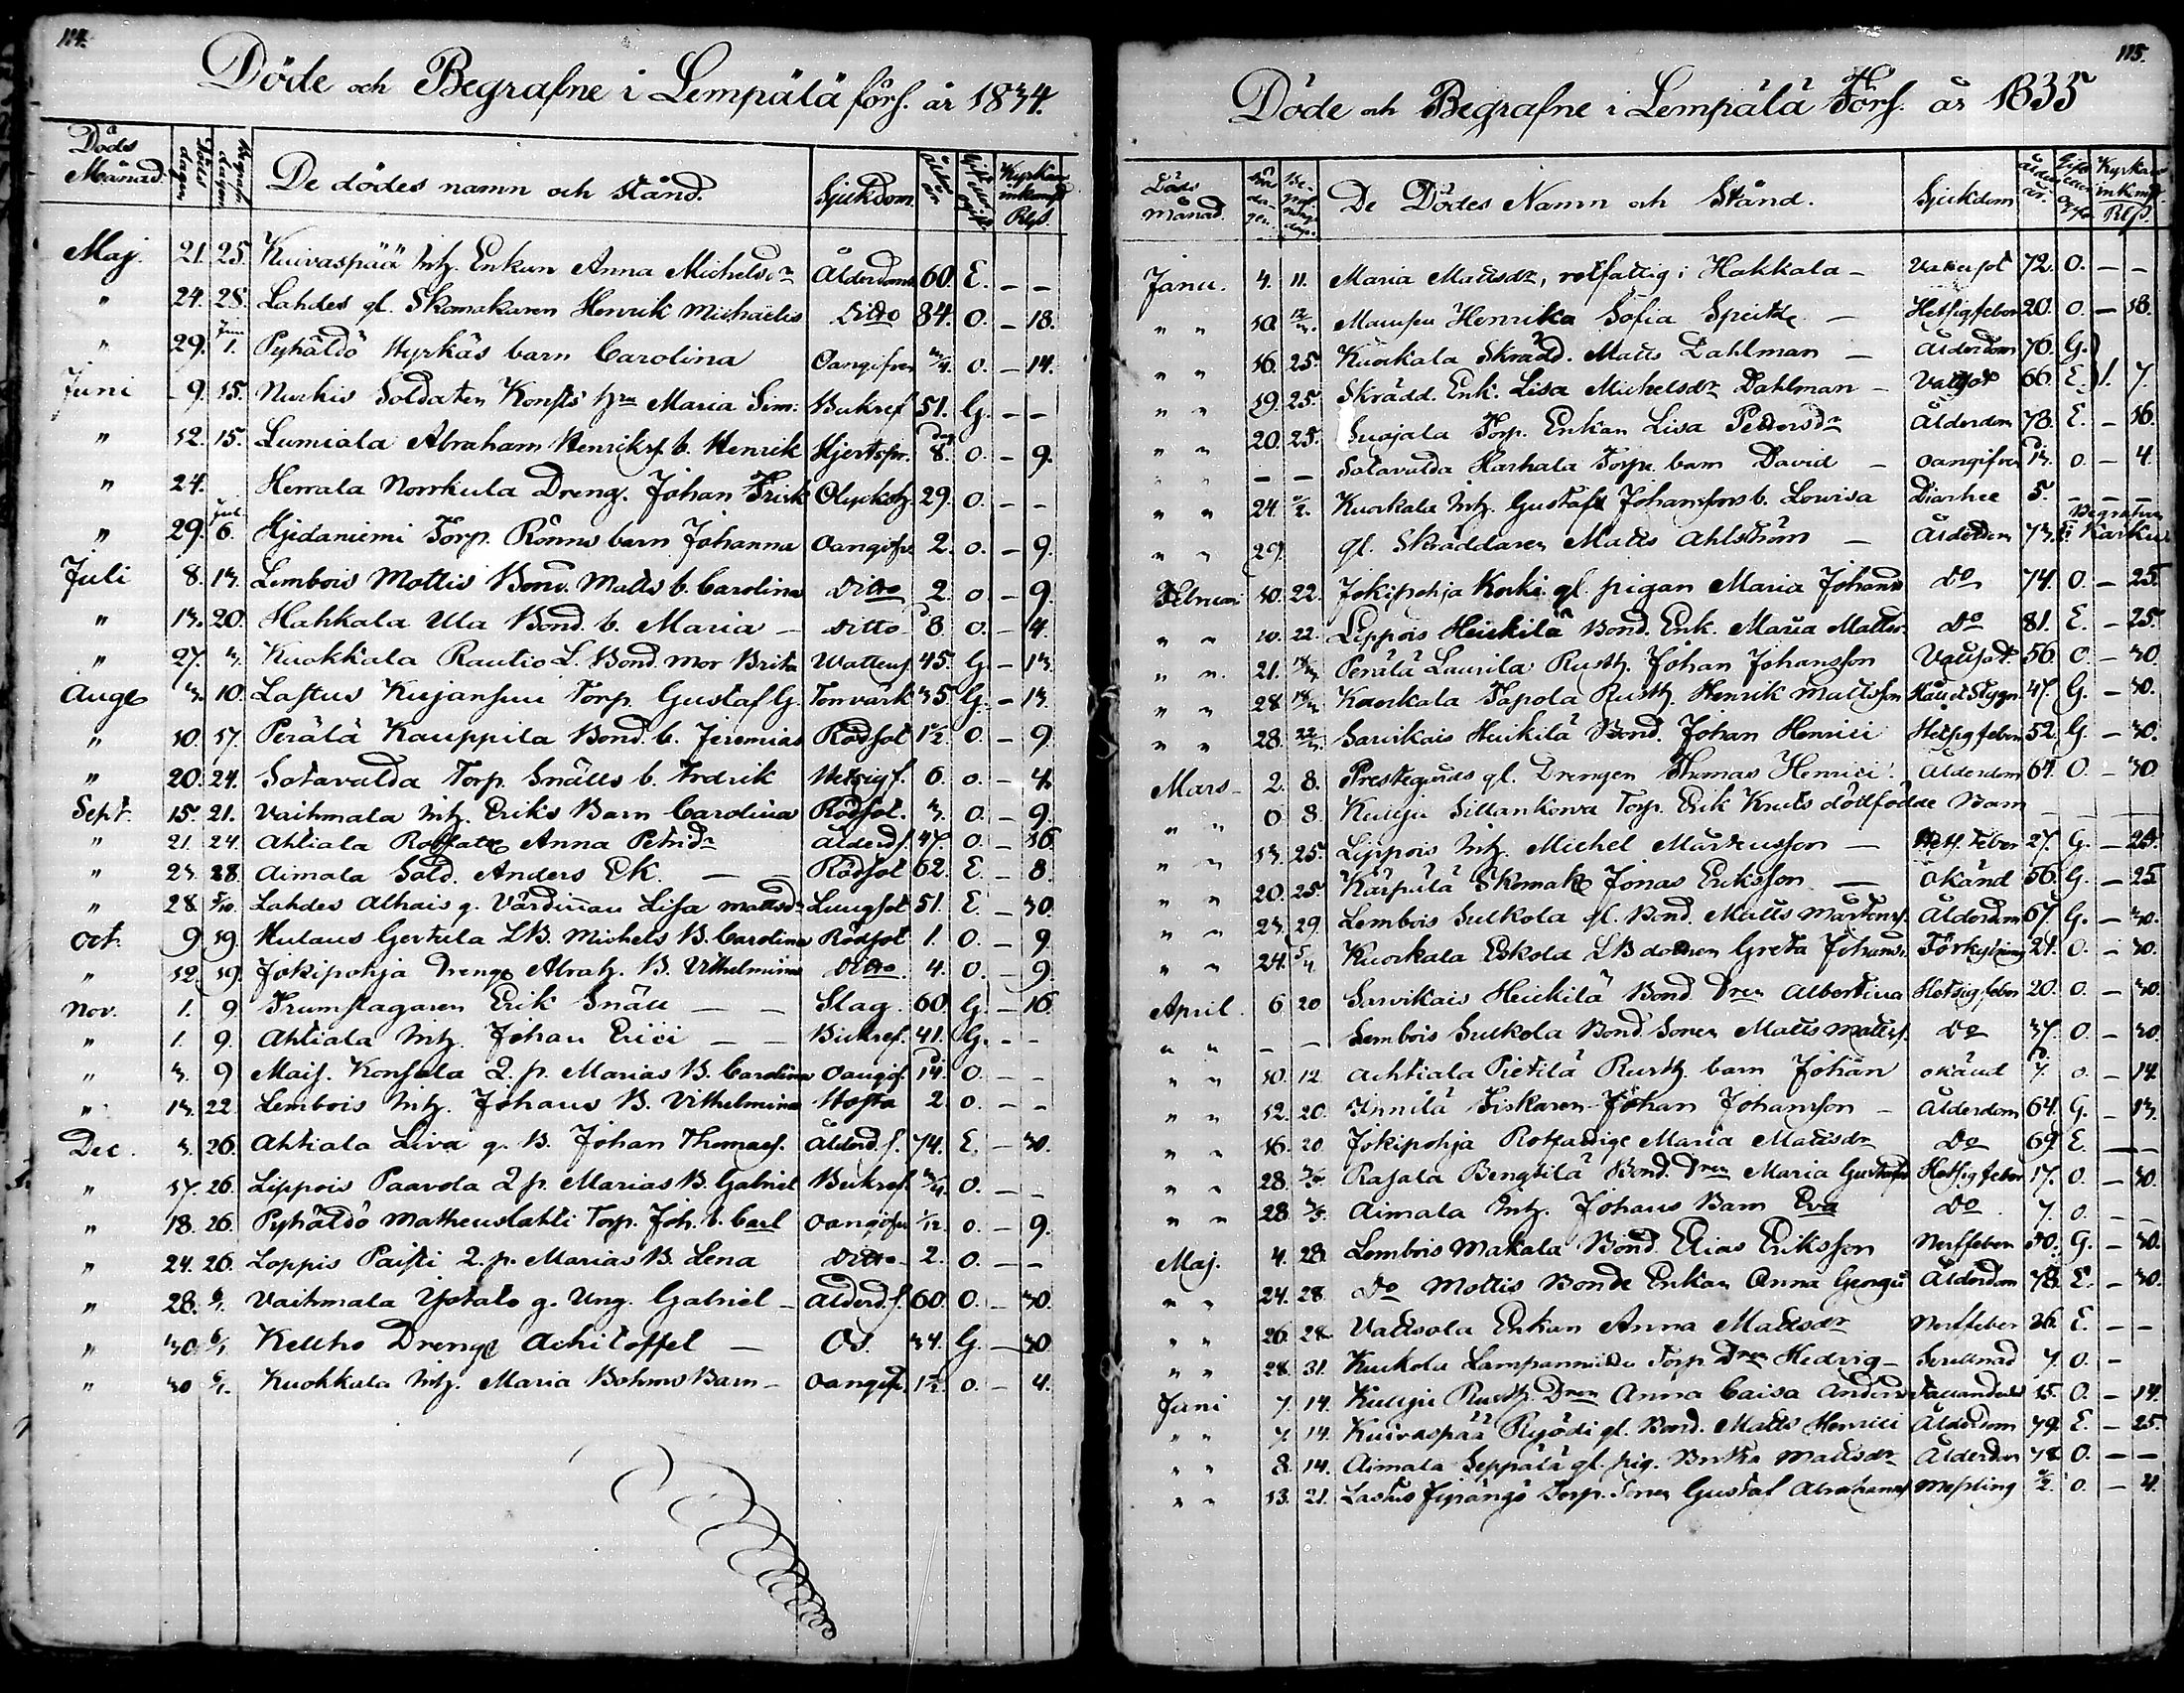 114.
Döde och Begrafne i Lempälä förs. år 1834.
Döds Månad. Döds dagen Begrafn. dagen De dödes namn och stånd. Sjukdom. ålder år Gift eller ogift Kyrkans inkomst Rbls.
Maj. 21. 25. Kuivaspää Inh. Enkan Anna Michelsdr Ålderdoms 60. E. – –
" 24. 28. Lahdes gl. Skomakaren Henrik Michaëlis Ditto 84. O. – 18.
" 29. Juni 1. Pyhäldö Hyrkäs barn Carolina Oangifven 3/4. O. – 14.
Juni 9. 15. Nurkis Soldaten Konsts hru Maria Sim: Bukref 51. G. – –
" 12. 15. Lumiala Abraham Henriks. b. Henrik Hjertspr. dag 8. O. – 9.
" 24. Herrala Norrkula Dreng. Johan Frisk Olycksh. 29. O. – –
" 29. Jul. 6. Hjidaniemi Torp. Rönns barn Johanna Oangifv. 2. O. – 9.
Juli 8. 13. Lembois Mottis Bond. Matts b. Carolina Ditto 2. O – 9.
" 13. 20. Hahkala Ula Bond. b. Maria – Ditto 8 O. – 4.
" 27. 3. Kuokkala Rautio L. Bond. mor Brita Wattens. 45. G. – 13.
Aug. 3. 10. Lastus Kujansuu Torp. Gustaf G. Torrvärk 35. G. – 13.
" 10. 17. Perälä Kauppila Bond. b. Jeremias Rödsot 1½. O – 9
" 20. 24. Sotavalda Torp. Snälls b. Fredrik Hetsigf. 6. O. – 4.
Sept. 15. 21. Vaihmala Inh. Eriks Barn Carolina Rödsot. 3. O. – 9.
" 21. 24. Ahtiala Rotfatt. Anna Petridr Ålderd.s. 47. O. – 16
" 23. 28. Aimala Sold. Anders Ek. – – Rödsot 62. E. – 8.
" 28. 5/10. Lahdes Alhais g. Värdinnan Lisa Mattsdr Lungsot 51. E. – 30.
Oct. 9. 19. Hulaus Gertula LB. Michels B. Carolina Rödsot 1. O. – 9.
" 12. 19. Jokipohja Dreng. Abrah. B. Vilhelmina Ditto. 4. O. – 9.
Nov. 1. 9. Trumslagaren Erik Snäll – – Slag. 60. G. – 16
" 1. 9. Ahtiala Inh. Johan Erici – – Bukref. 41. G. – –
" 3. 9 Mais. Konsala 2. p. Marias B. Carolina Oangif. 14. O – –
" 13. 22. Lembois Inh. Johans B. Vilhelmina Hosta 2. O. – –
Dec. 3. 26. Ahtiala Liva g. B. Johan Thomæs. Ålderd.s. 74. E. – 30.
" 17. 26. Lippois Paavola 2 p. Marias B. Gabriel Bukref. 3/4. O. – –
" 18. 26. Pyhäldö Matheuslahti Torp. Joh. b. Carl Oangifven 1/12. O. – 9.
" 24. 26. Loppis Paisti 2. p. Marias B. Lena Ditto. 2. O. – –
" 28. 6/1. Vaihmala Ylotalo g. Ung. Gabriel – Ålderd.s. 60 O. – 30.
" 30. 6/1. Kellho Dreng. Achitoffel – Os. 34. G. – 30
" 30 6/1. Kuokkala Inh. Maria Bohms Barn – Oangif. 1½. O. – 4.
115.
Döde och Begrafne i Lempälä Förs. år 1835
Döds månad. Dödadagen. Begrafningsdag. De Dödes Namn och Stånd. Sjukdom ålder år. Gift eller ogift Kyrkans inkomst Rbls.
Janu. 4. 11. Maria Mattsdr, rotfattig i Hakkala – Vatusot 72. O. – –
" " 10. 12/3. Mamsen Henrika Sofia Speitz – Hetsigfeber 20. O. – 18.
" " 16. 25. Kuokala Skrädd. Matts Dahlman – Ålderdom 70. G.
" " 19. 25. Skrädd. Enk. Lisa Michelsdr Dahlman – Vattsot 66. E. 1. 7.
" " 20. 25. Suojala Torp. Enkan Lisa Pettersdr Ålderdom 73. E. – 16.
" " – – Sotavalda Harhala Torp. barn David – Oangifven 13. O – 4.
" " 24. 1/2. Kuokala Inh. Gustaf Johanssons b. Lowisa Diarhee 5. – – –
" " 29. gl. Skräddaren Matts Ahlström – Ålderdom 73. Begrafven i Karkku
Februari 10. 22. Jokipohja Korki gl. pigan Maria Johansdr Do 74. O – 25.
" " 10. 22. Lippois Heikilä Bond. Enk. Maria Mattsdr. Do 81. E. – 25.
" " 21. 15/3. Perälä Laurila Rusth. Johan Johansson Vattsot. 56. O – 30.
" " 28. 15/3. Kuokala Tapola Rusth. Henrik Mattsson Håll o. Stygn 47. G. – 30.
" " 28. 22/3. Sarvikais Heikilä Bond. Johan Henrici Hetsig feber 52. G. – 30.
Mars – 2. 8. Prestegårds gl. Drengen Thomas Henrici. Ålderdom 64. O. – 30
" " 0 8. Kulju Sillankorva Torp. Erik Knuts dödfödde Barn – – –
" " 13. 25. Lippois Inh. Michel Mårtensson – Hets. Feber 27. G. – 25.
" " 20. 25. Kärpälä Skomak. Jonas Eriksson – Okänd 56. G. – 25
" " 23. 29 Lembois Sulkola gl. Bond. Matts Mårtens. Ålderdom 67. G. – 30.
" " 24. 5/4 Kuokala Eskola LB dottren Greta Johansdr. Förkylning 21. O. – 30.
April. 6 20 Sarvikais Heikilä Bond. Dren Albertina Hetsig feber 20. O. – 30.
" " – – Lembois Sulkola Bond Sonen Matts Mattss. Do 37. O – 30.
" " 10. 12 Achtiala Pietilä Rusth. barn Johan okänd 7. O. – 14.
" " 12. 20. Innilä Fiskaren Johan Johansson – Ålderdom 64. G. – 13.
" " 16. 20 Jokipohja Rotfattige Maria Mattsdr Do 69. E. – –
" " 28. 3/5 Rasala Bengtilä Bond. Dren Maria Gustafsd. Hetsig feber 17. O. – 30.
" " 28 3/5. Aimala Inh. Johans Barn Eva Do 7. O. – –
Maj. 4. 28. Lembois Makala Bond. Elias Eriksson Nerffeber 50. G. – 30.
" " 24. 28. Do Mottis Bonde Enkan Anna Georgii Ålderdom 78. E. – 30.
" " 26. 28. Vattsola Enkan Anna Mattsdr Nerffeber 36. E. – –
" " 28. 31. Kuokola Lampanniitu Torp. Dren Hedvig – 7. O. –
Juni 7. 14. Kulju Rusth. Dren Anna Caisa Anders 15. O. – 14.
" " 7. 14. Kuivaspää Ryödi gl. Bond. Matts Henrici Ålderdom 79. E. – 25.
" " 8. 14. Aimala Seppälä gl. pig. Britta Mattsdr Ålderdom 78 O. – –
" " 13. 21. Lastus Torp. Sonen Gustaf Abrahams. Messling ½. O. – 4.